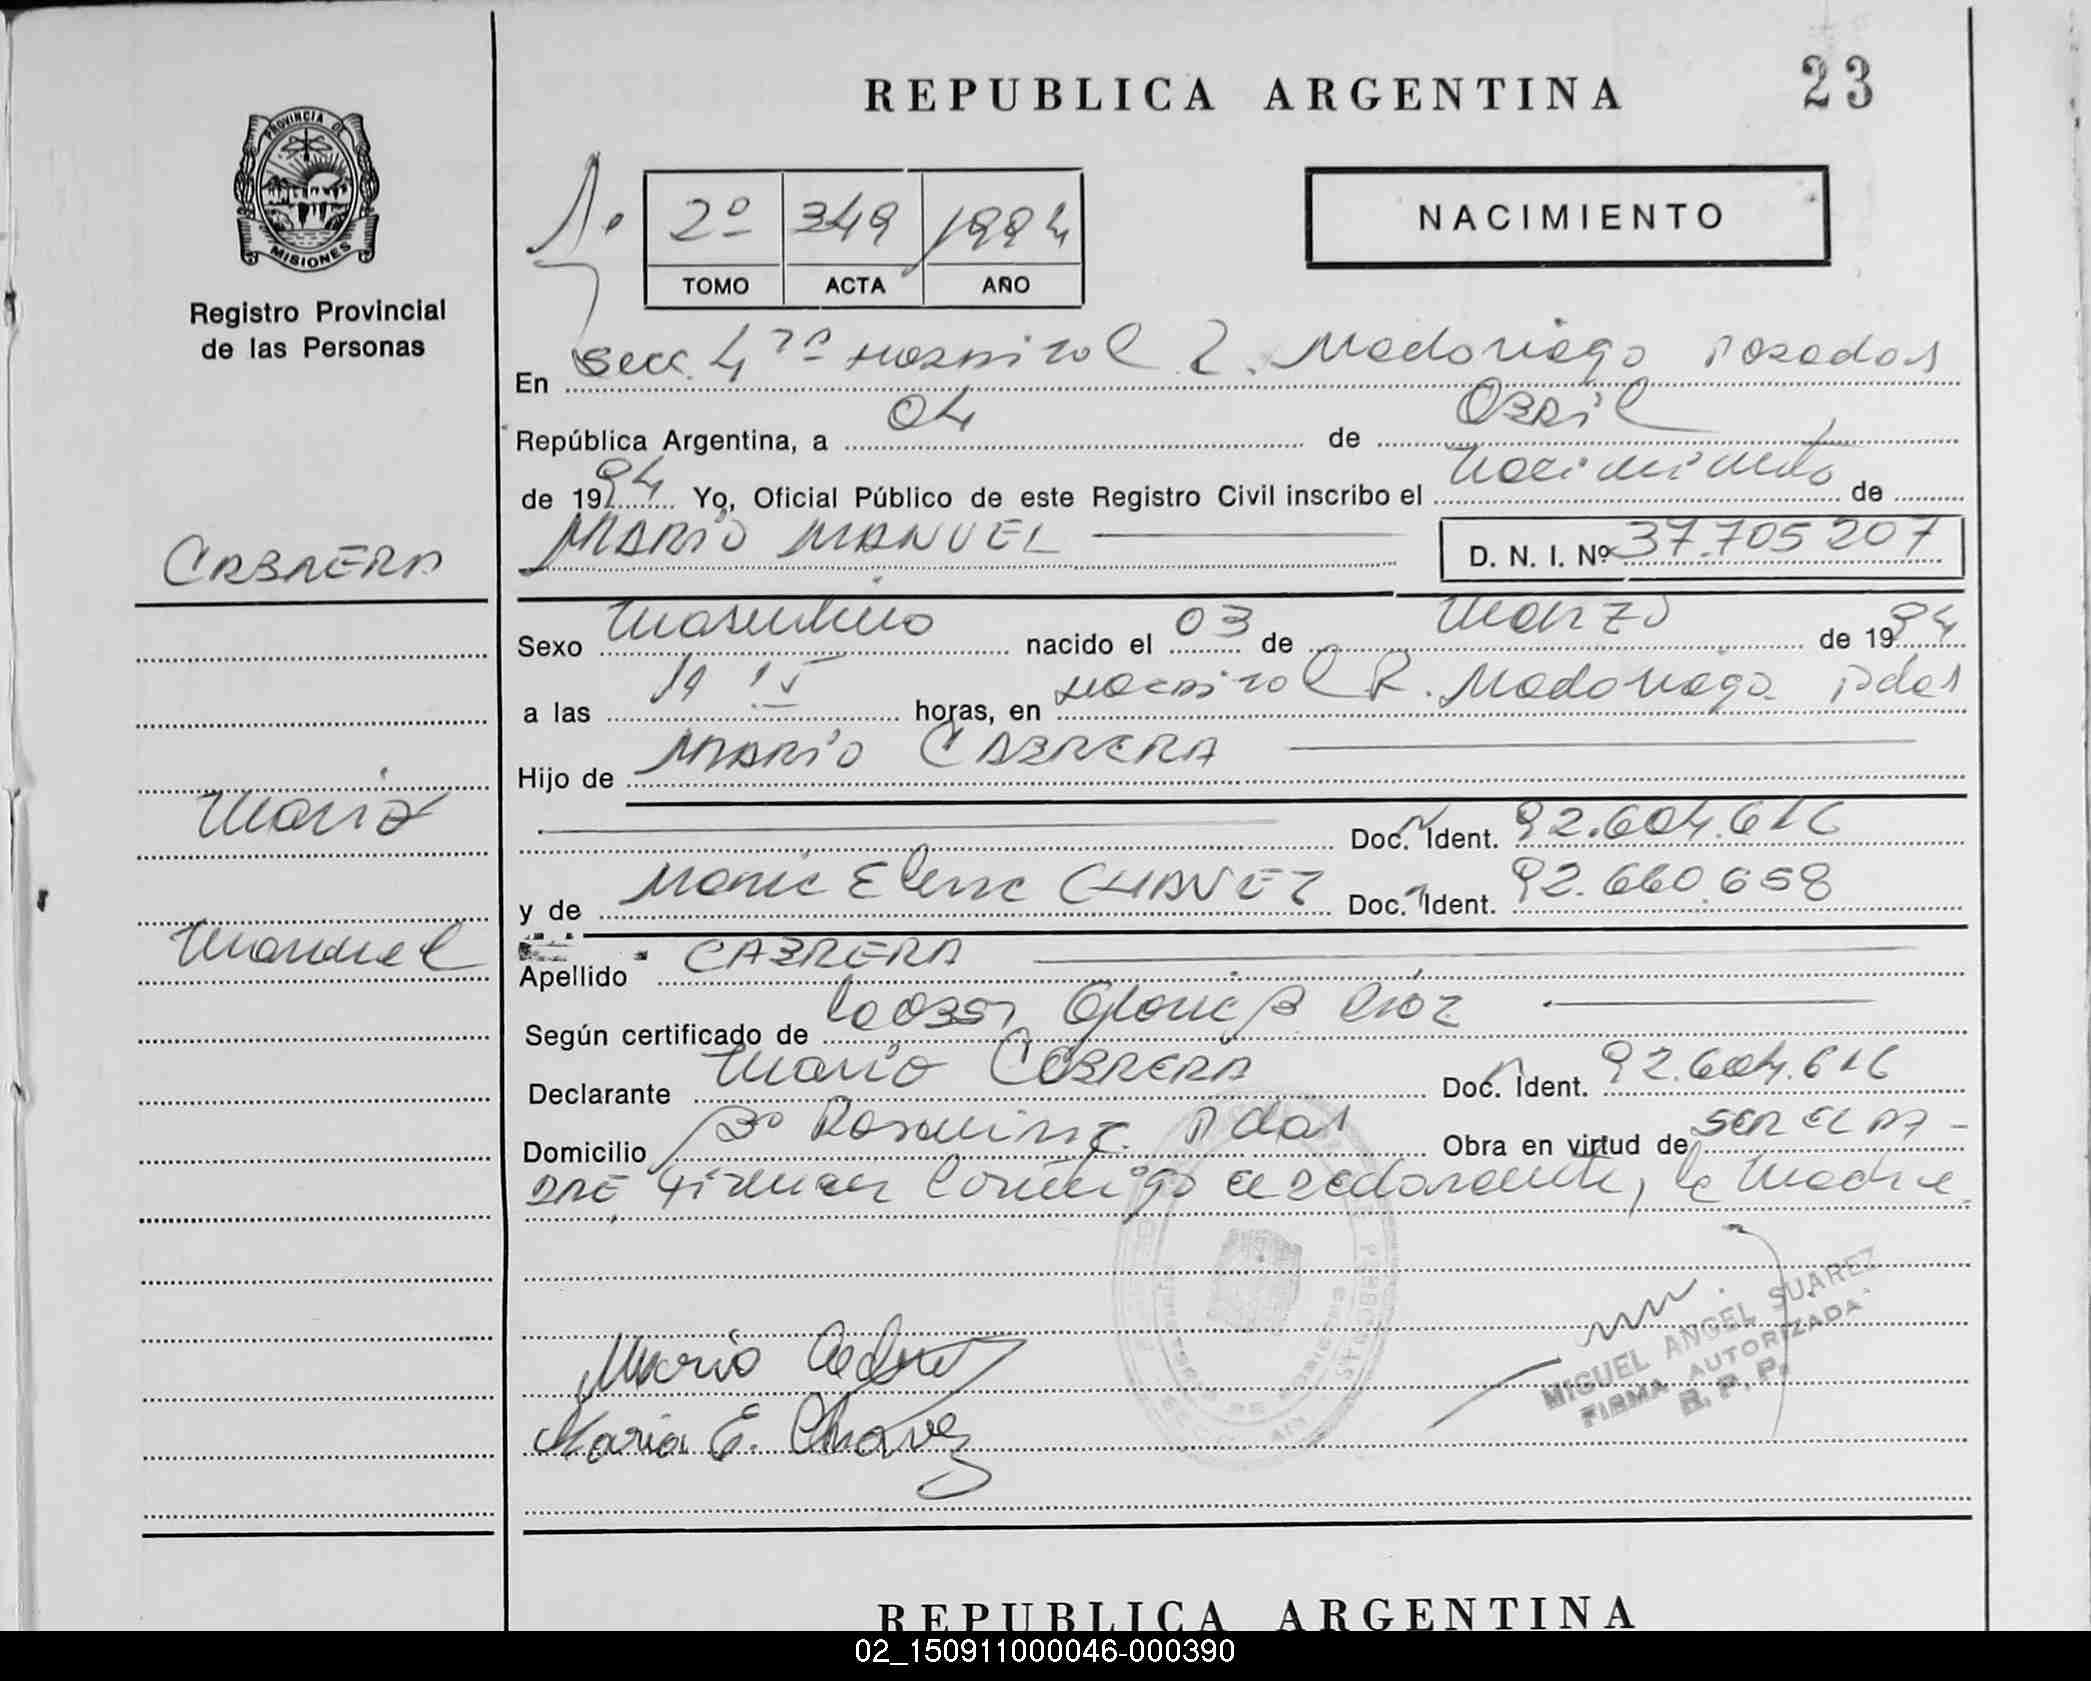 REPUBLICA ARGENTINA
23
PROVINCIA DE
MISIONES
Registro Provincial
de las Personas
2º 349 1994
TOMO ACTA AÑO
NACIMIENTO
En Secc. 4ta Hospital R. Madariaga Posadas
República Argentina, a 04 de Abril
de 1994 Yo, Oficial Público de este Registro Civil inscribo el nacimiento de
CABRERA
MARIO MANUEL
D. N. I. Nº 37.705 207
Sexo Masculino nacido el 03 de Marzo de 1994
a las horas, en Hospital R. Madariaga Pdas
Hijo de MARIO CABRERA
Mario
Doc. Ident. 92.604.616
y de Maria Elena CHAVEZ Doc. Ident. 92.660.658
Manuel
Apellido CABRERA
Según certificado de la Obst Gloria B
Declarante Mario CABRERA Doc. Ident. 92.604.616
Domicilio Bº Pdas Obra en virtud de SER EL PA-
DRE Firman Conmigo el declarante, la Madre
Mario Cabrera
Maria E. Chavez
MIGUEL ANGEL SUAREZ
FIRMA AUTORIZADA
R. P. P.
REPUBLICA ARGENTINA
02_150911000046-000390